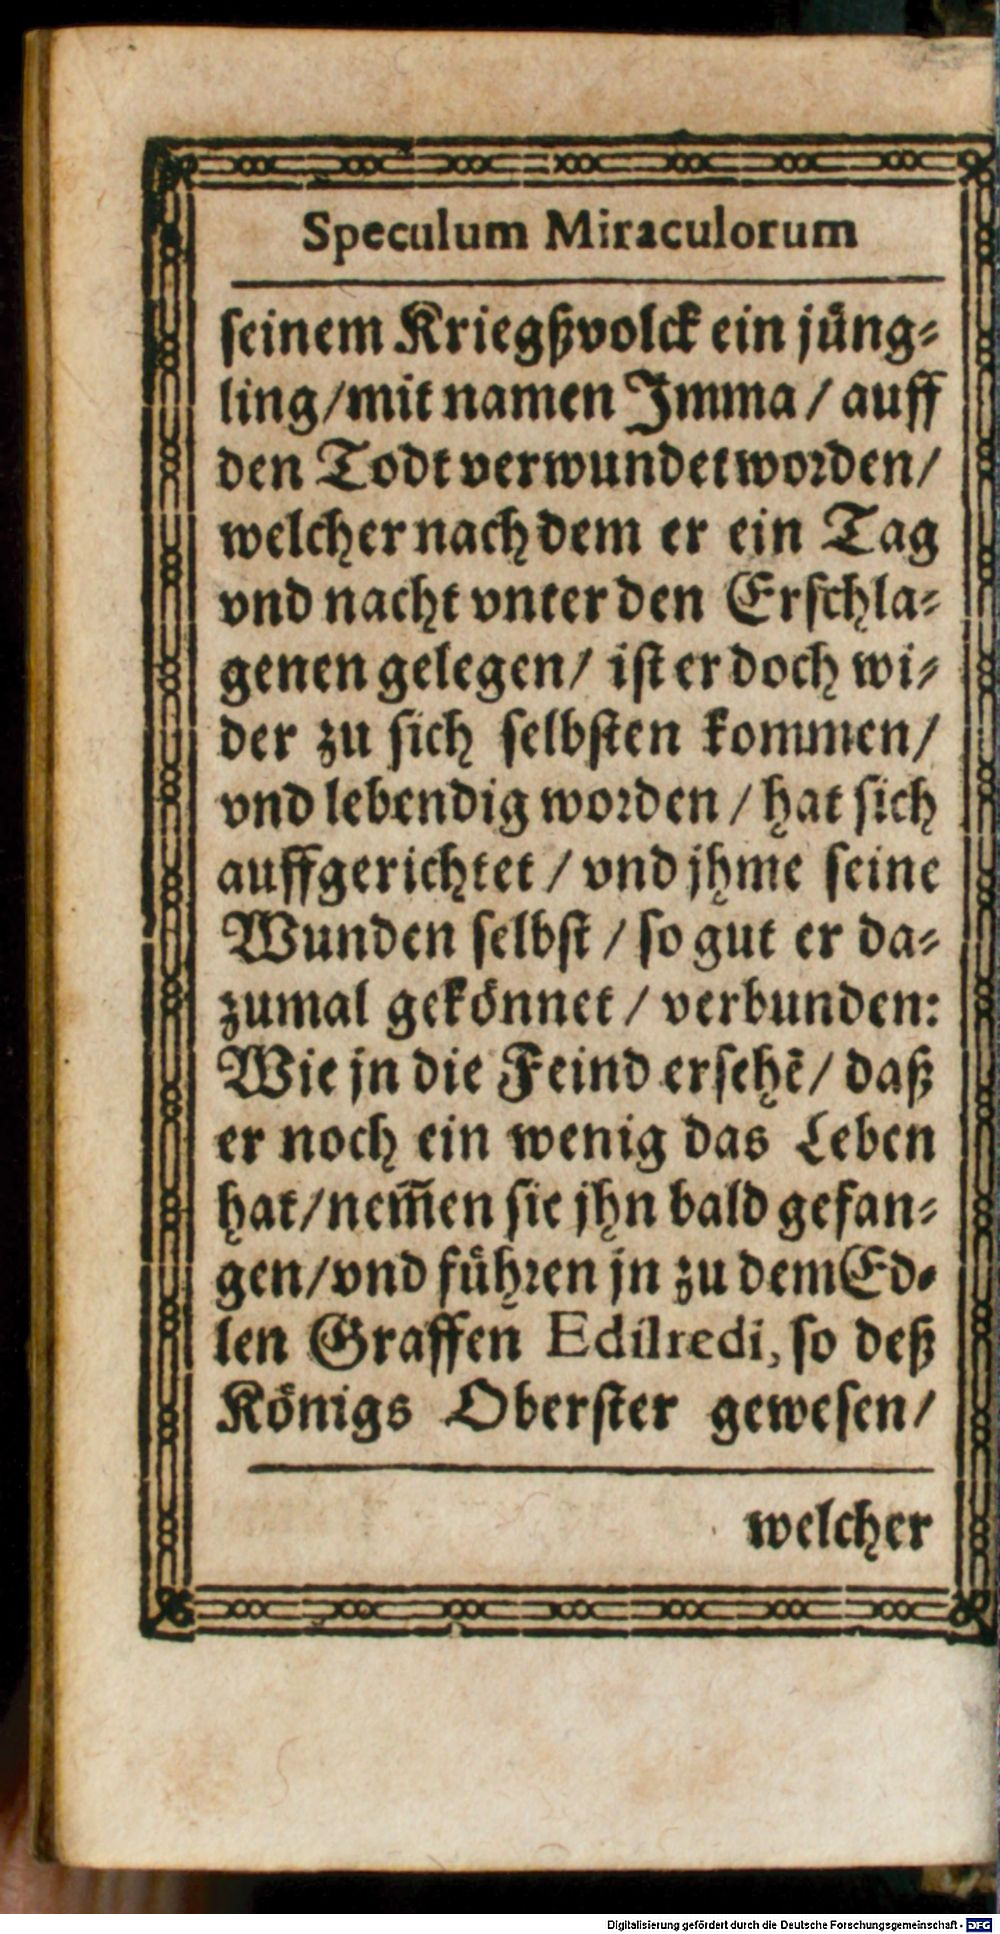 Speculum Miraculorum
seinem Kriegßvolck ein jüng⸗
ling/mit namen Imma/ auff
den Todt verwundet worden/
welcher nach dem er ein Tag
vnd nacht vnter den Erschla⸗
genen gelegen/ ist er doch wi⸗
der zu sich selbsten kommen/
vnd lebendig worden/ hat sich
auffgerichtet/ vnd jhme seine
Wunden selbst/ so gut er da⸗
zumal gekönnet/ verbunden:
Wie jn die Feind ersehē/ daß
er noch ein wenig das Leben
hat/nem̄en sie jhn bald gefan⸗
gen/vnd führen jn zu dem Ed⸗
len Graffen Edilredi, so deß
Königs Oberster gewesen/
welcher
Digitalisierung gefördert durch die Deutsche Forschungsgemeinschaft - DFG